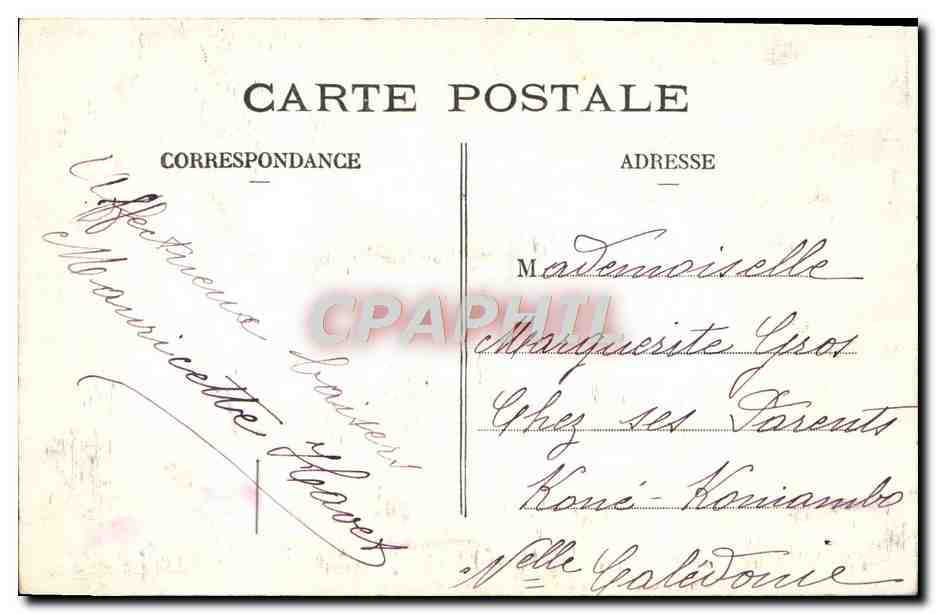 CARTE POSTALE
CORRESPONDANCE
Affectueux baisers
Mauricette Havet
ADRESSE
Mademoiselle
Marguerite Gros
Chez ses Parents
Koné - Koniambo
Nelle Calédonie
CPAPHIL